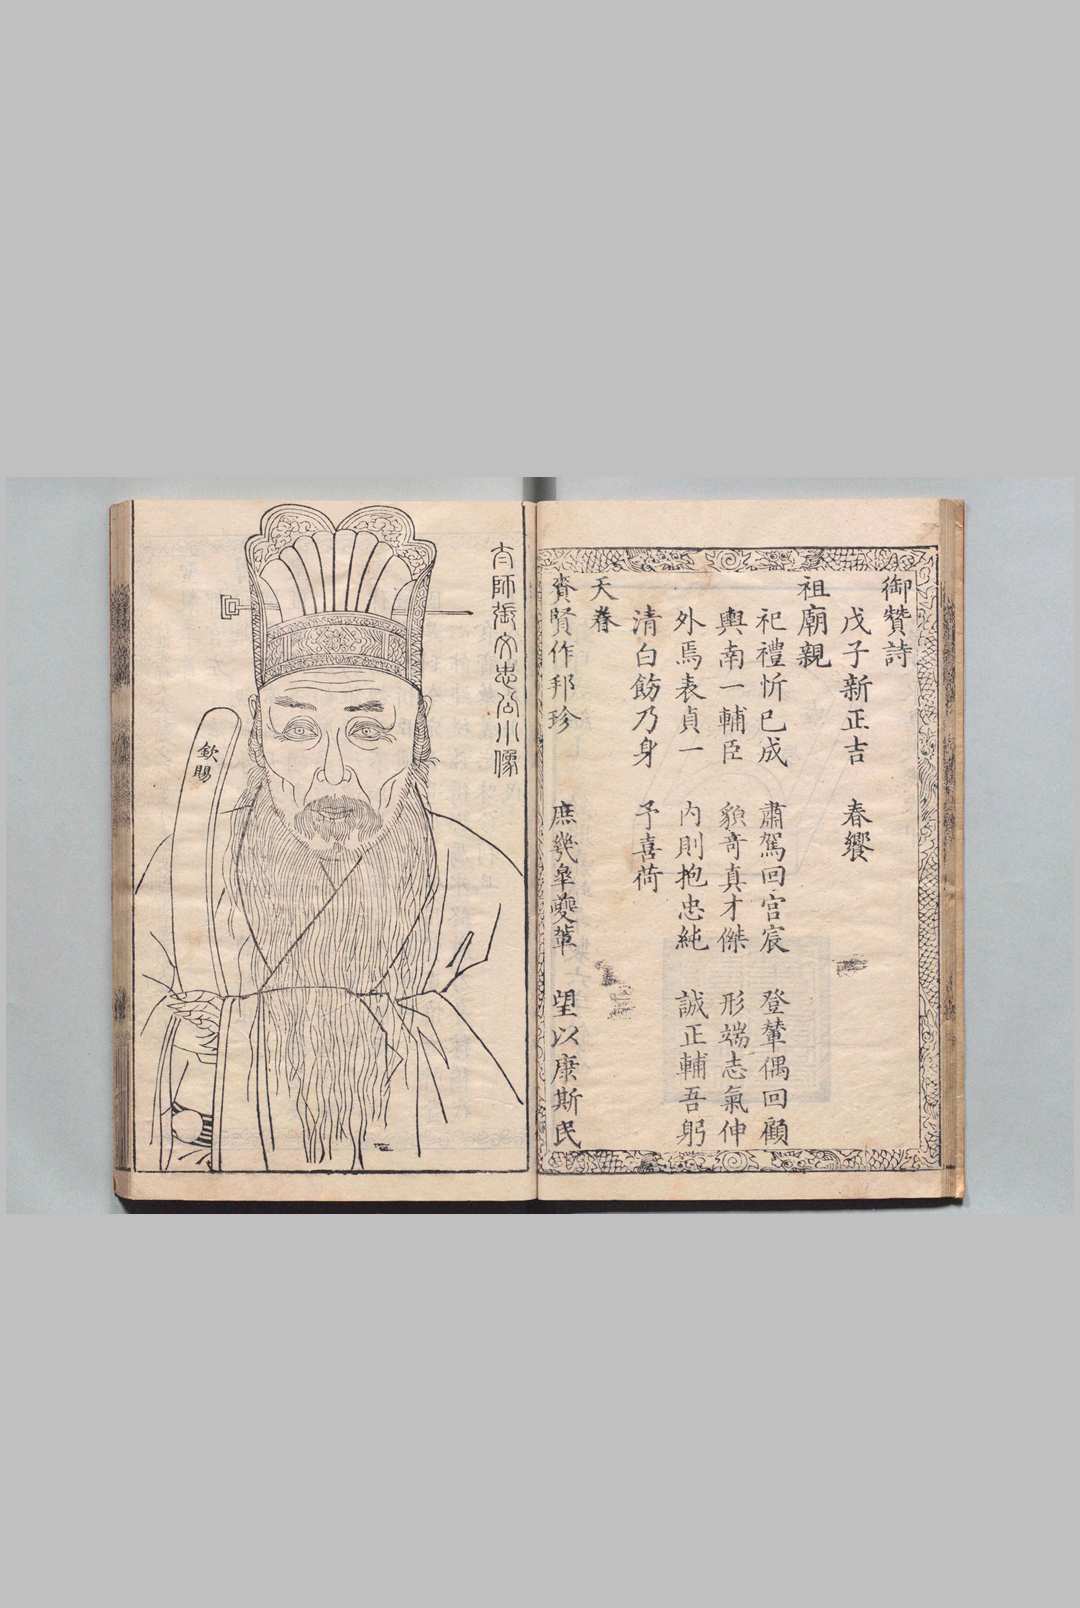 御贊詩
戊子新正吉 春饗
祖廟親
祀禮忻已成 肅駕回宮宸 登輦偶回顧
輿南一輔臣 貌奇真才傑 形端志氣伸
外焉表貞一 内則抱忠純 誠正輔吾躬
清白飭乃身 予喜荷
天眷
賚賢作邦珍 庶幾皐夔輩 望以康斯民
太師張文忠公小像
欽賜